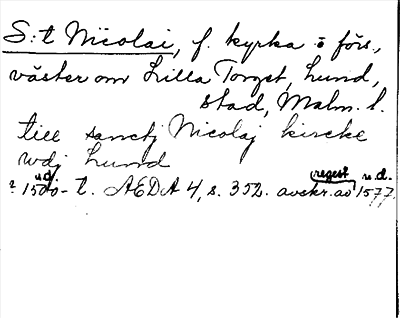 S:t Nicolai, f. kyrka o förs.,
väster om Lilla Torget, Lund,
stad, Malm. l.
till sanctj Nicolaj kircke
wdj Lund
? 1500- t. ÆDA 4, s. 352. avskr. av regest u.d. 1577.